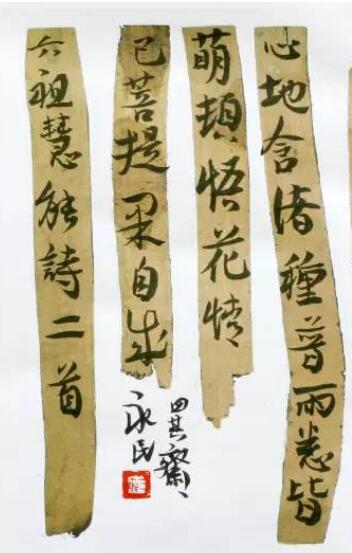 心地含诸種普雨悉皆
萌頓悟花情
已菩提果自成
四其齋
永民
六祖慧能詩二首